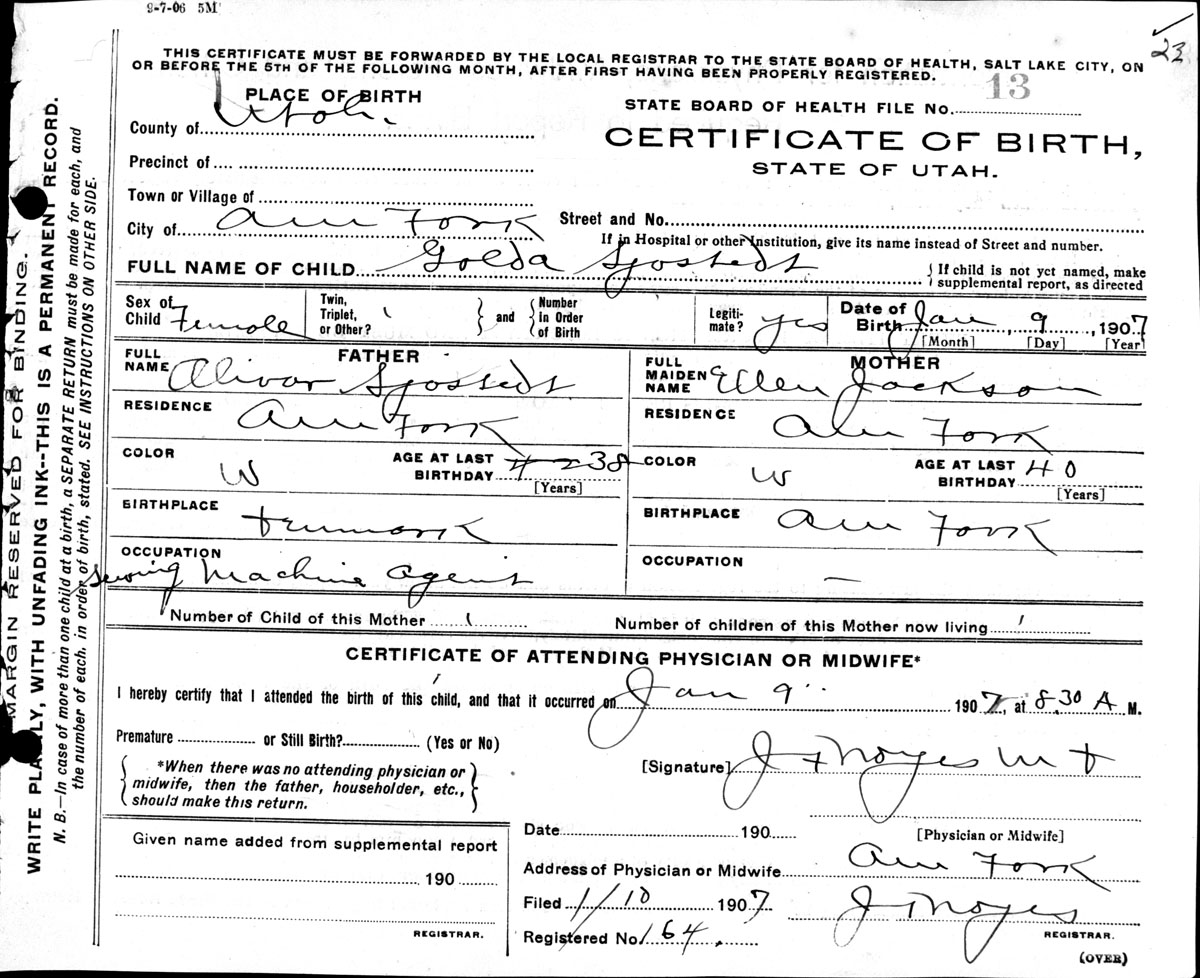 9-7-06 5M
23
THIS CERTIFICATE MUST BE FORWARDED BY THE LOCAL REGISTRAR TO THE STATE BOARD OF HEALTH, SALT LAKE CITY, ON
OR BEFORE THE 5TH OF THE FOLLOWING MONTH, AFTER FIRST HAVING BEEN PROPERLY REGISTERED.
13
PLACE OF BIRTH
STATE BOARD OF HEALTH FILE No.
County of Utah.
CERTIFICATE OF BIRTH,
STATE OF UTAH.
Precinct of
Town or Village of
City of Am Fork
Street and No.
If in Hospital or other Institution, give its name instead of Street and number.
FULL NAME OF CHILD Golda Sjostedt
{ If child is not yet named, make
supplemental report, as directed
Sex of Child Female
Twin, Triplet, or Other?
} and {
Number In Order of Birth
Legiti-mate? yes
Date of Birth Jan, 9, 1907
[Month] [Day] [Year]
FATHER
FULL NAME Olivar Sjostedt
MOTHER
FULL MAIDEN NAME Ellen Jackson
RESIDENCE Am Fork
RESIDENCE Am Fork
COLOR W
AGE AT LAST BIRTHDAY 42 38
[Years]
COLOR W
AGE AT LAST BIRTHDAY 40
[Years]
BIRTHPLACE Denmark
BIRTHPLACE Am Fork
OCCUPATION
Sewing Machine Agent
OCCUPATION —
Number of Child of this Mother 1
Number of children of this Mother now living 1
CERTIFICATE OF ATTENDING PHYSICIAN OR MIDWIFE*
I hereby certify that I attended the birth of this child, and that it occurred on Jan 9 1907, at 8.30 A M.
Premature or Still Birth? (Yes or No)
{ *When there was no attending physician or
midwife, then the father, householder, etc.,
should make this return. }
[Signature] J F Noyes M D
[Physician or Midwife]
Date 190
Given name added from supplemental report
190
REGISTRAR.
Address of Physician or Midwife Am Fork
Filed 1/10 1907
J F Noyes
REGISTRAR.
Registered No. 164.
(OVER)
MARGIN RESERVED FOR BINDING.
WRITE PLAINLY, WITH UNFADING INK--THIS IS A PERMANENT RECORD.
N. B.—In case of more than one child at a birth, a SEPARATE RETURN must be made for each, and
the number of each, in order of birth, stated. SEE INSTRUCTIONS ON OTHER SIDE.